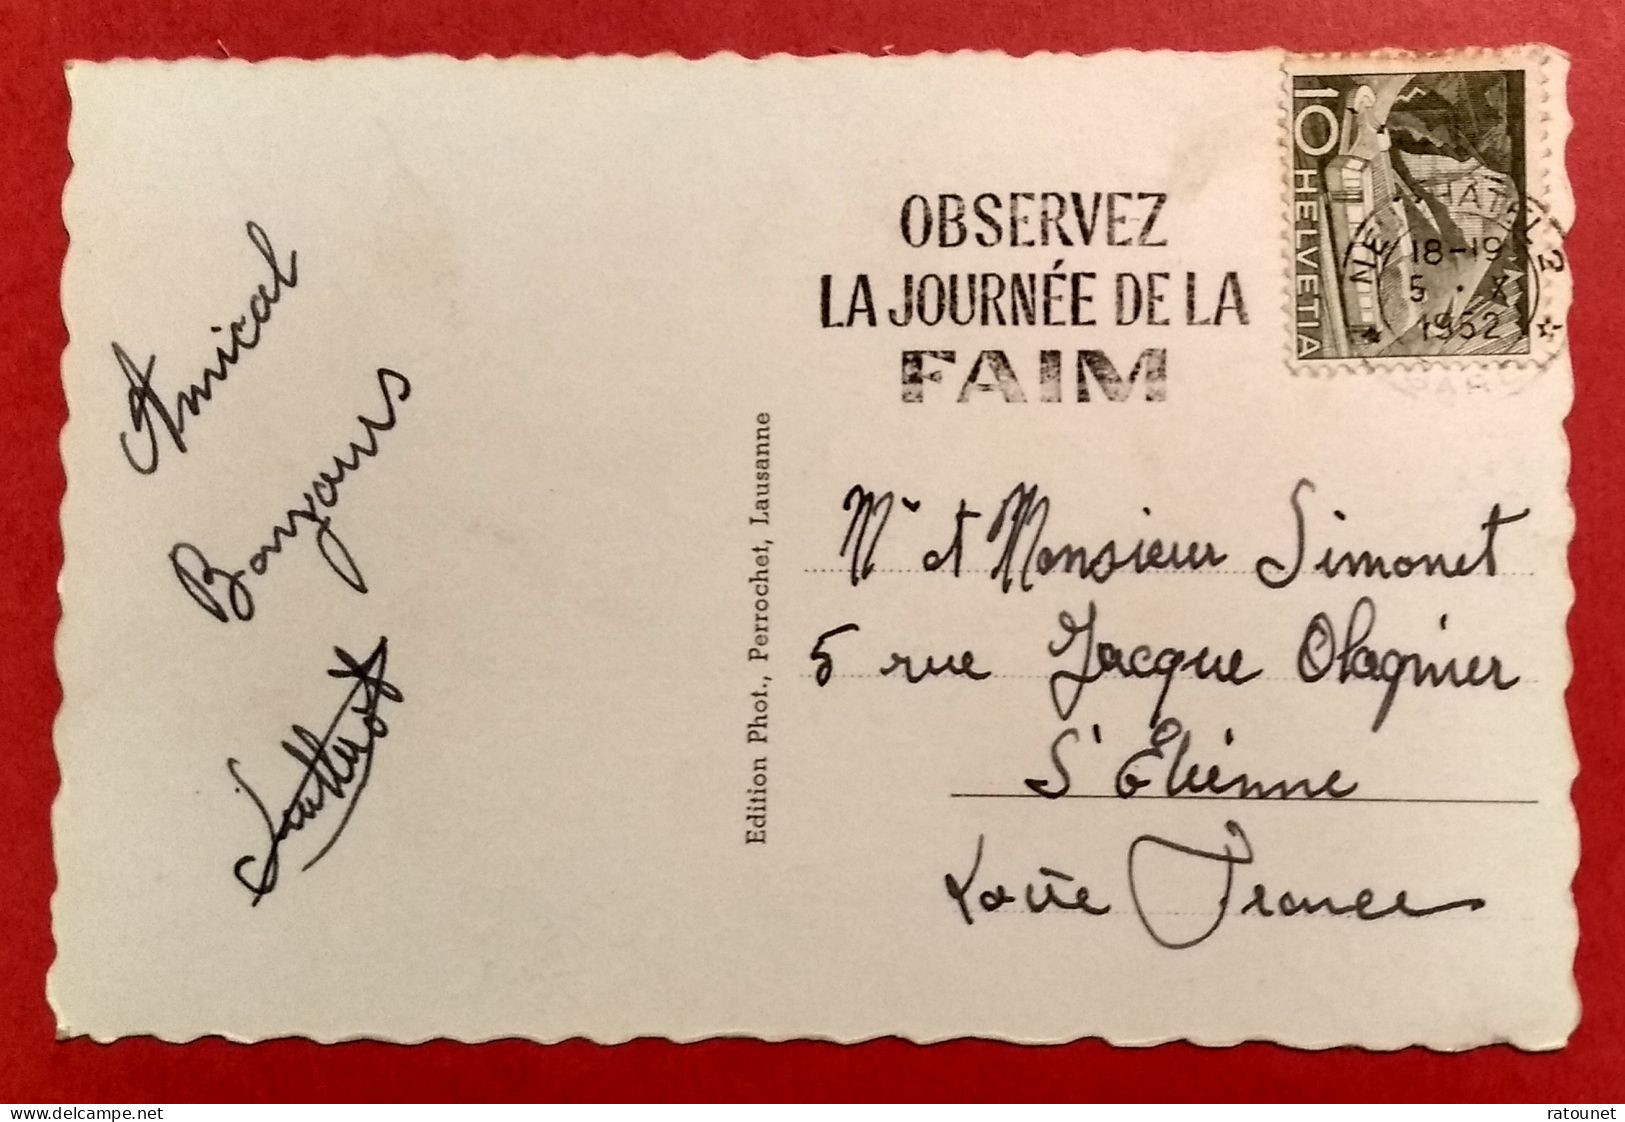 10 HELVETIA
NEUCHATEL 2
18-19
5 . X
1952
OBSERVEZ
LA JOURNÉE DE LA
FAIM
Amical
Bonjours
Edition Phot., Perrochet, Lausanne
Mr et Monsieur Simonet
5 rue Jacque Olagnier
St Etienne
Loire France
delcampe.net
ratounet